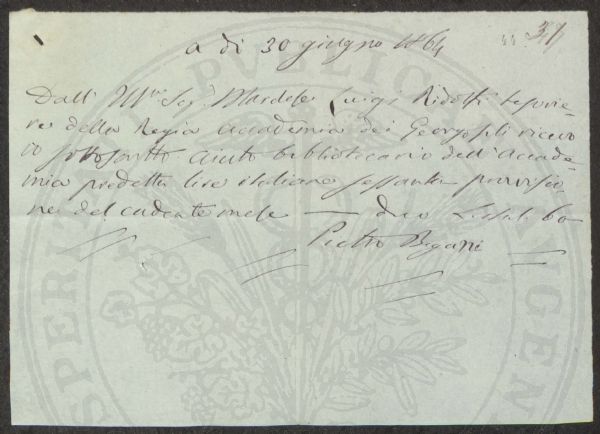 a dì 30 giugno 1864
37
Dall' Ill.mo Sig.r Marchese Luigi Ridolfi tesorie-
re della Regia Accademia dei Georgofili ricevo
io sottoscritto aiuto bibliotecario dell'Accade-
mia predetta lire italiane sessanta provvisio-
ne del cadente mese — dico 60
Pietro